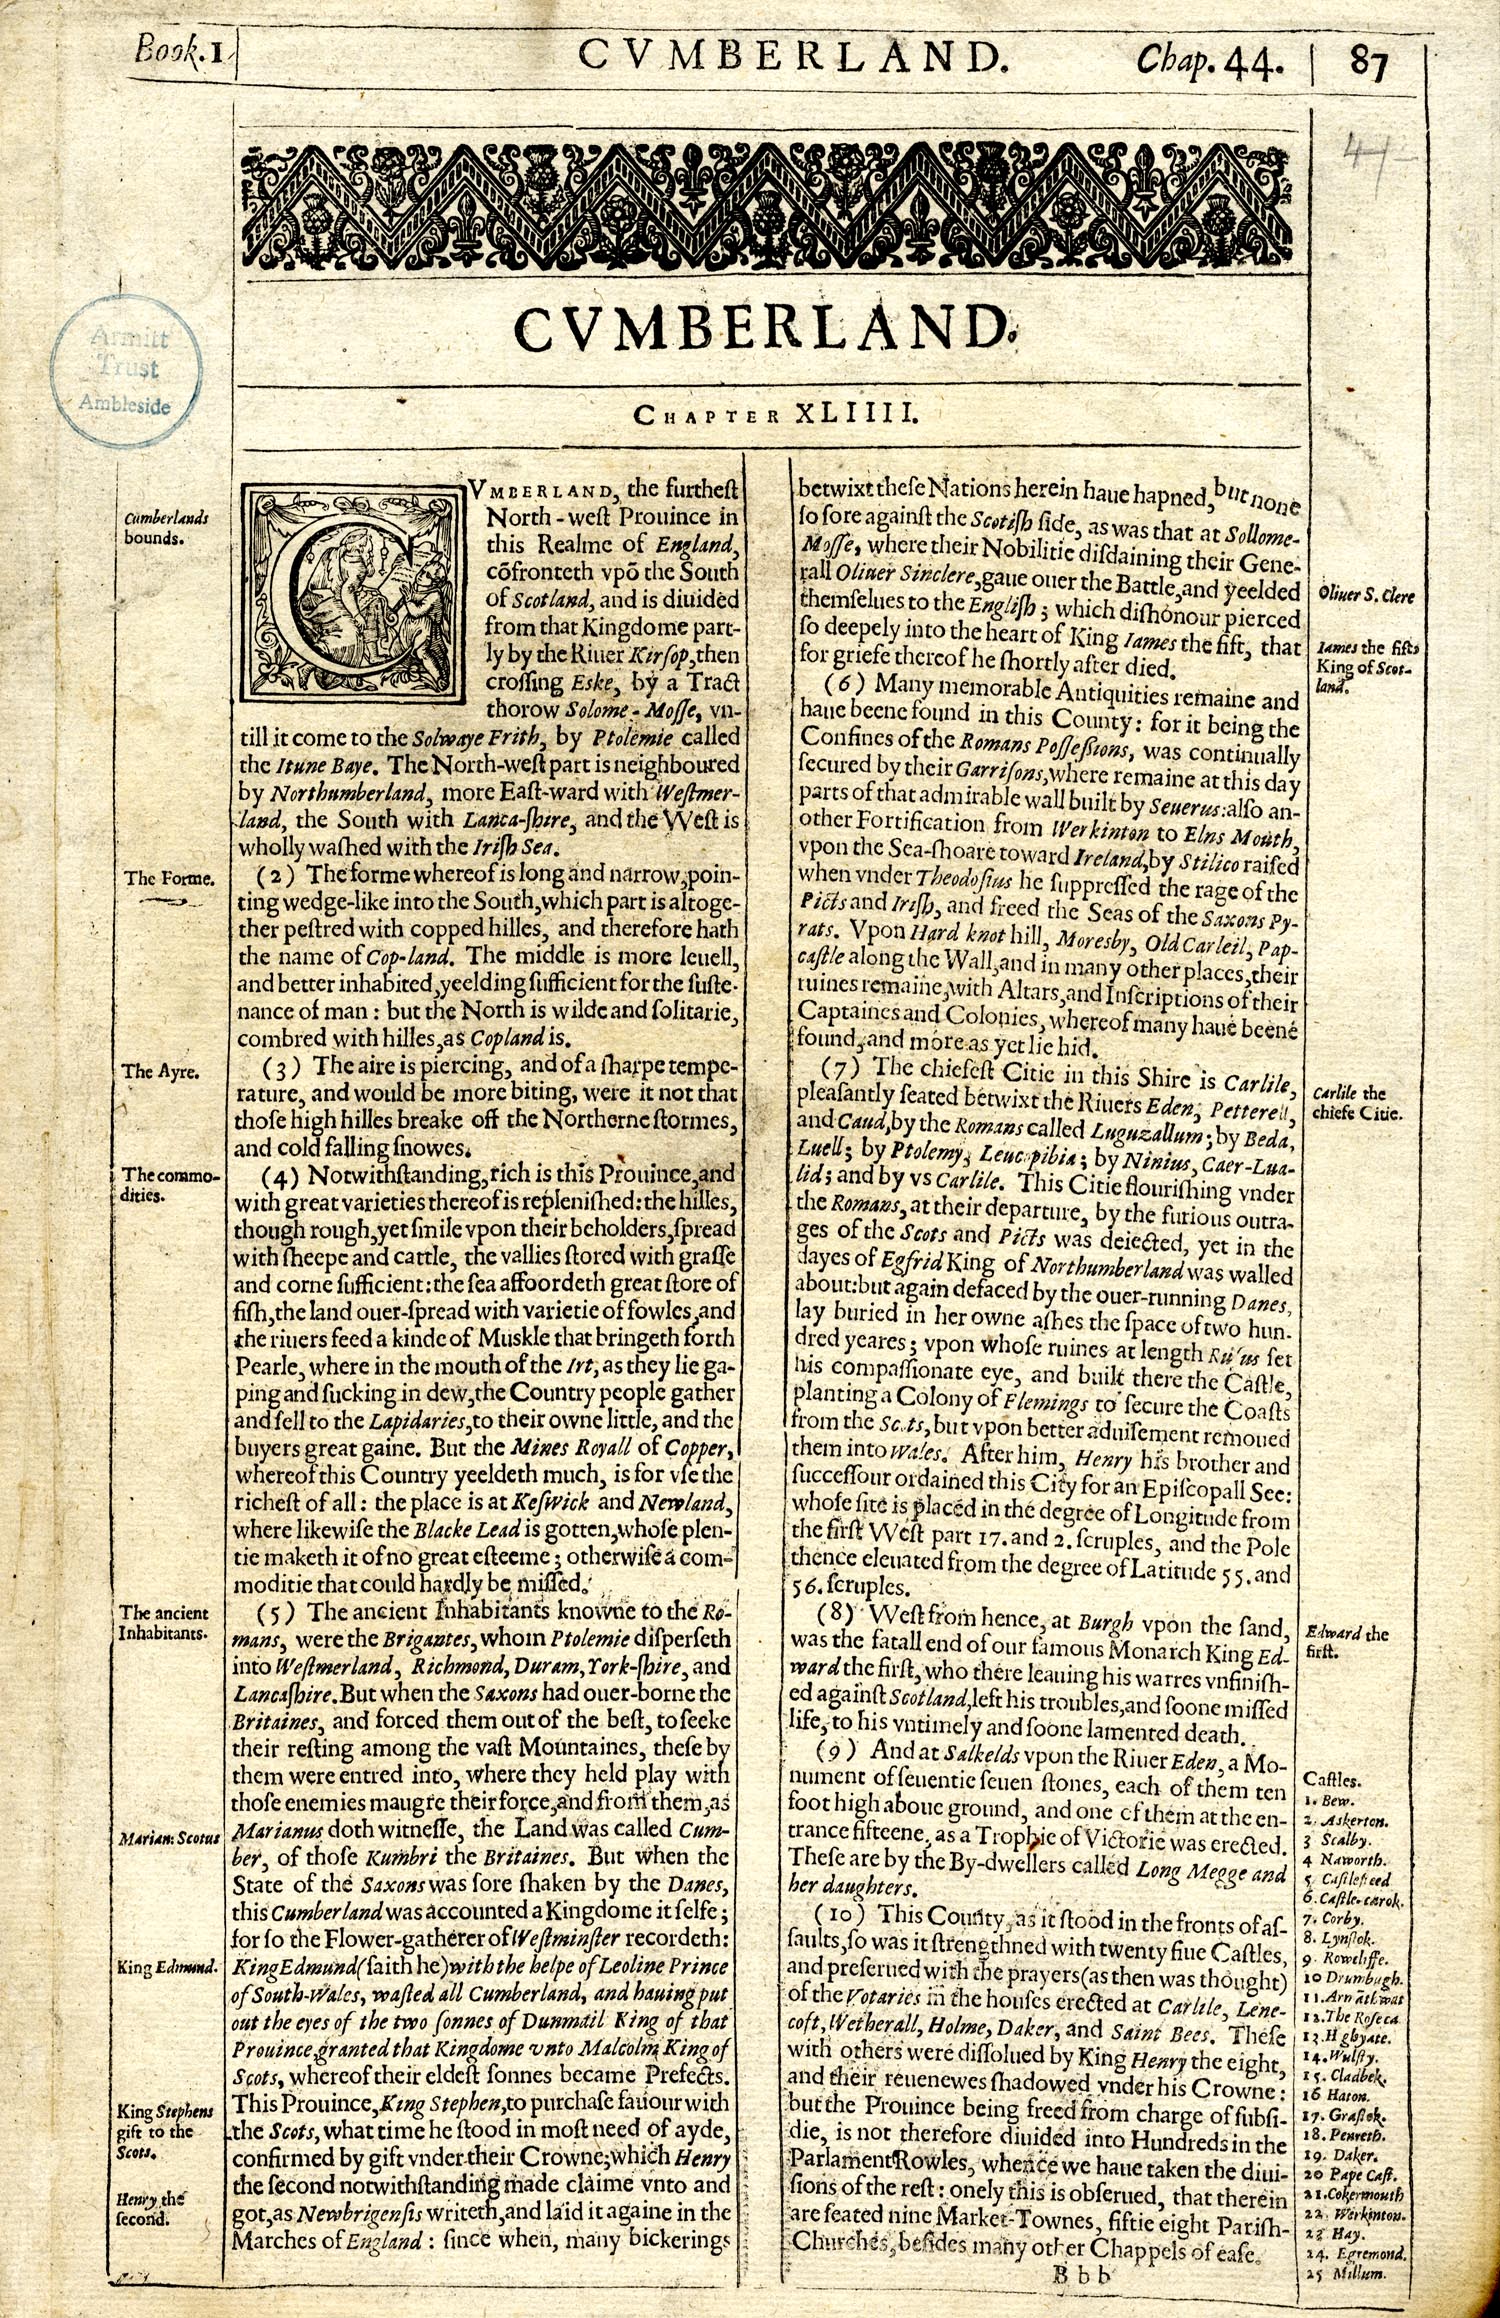 Book. 1
CVMBERLAND.
Chap. 44.
87
44
CVMBERLAND.
CHAPTER XLIIII.
Armitt
Trust
Ambleside
Cumberlands
bounds.
The Forme.
The Ayre.
The commo-
dities.
The ancient
Inhabitants.
Marian: Scotus
King Edmund.
King Stephens
gift to the
Scots.
Henry the
second.
CVMBERLAND, the furtheſt
North-weſt Prouince in
this Realme of England,
cõfronteth vpõ the South
of Scotland, and is diuided
from that Kingdome part-
ly by the Riuer Kirſop, then
croſſing Eske, by a Tract
thorow Solome-Moſſe, vn-
till it come to the Solwaye Frith, by Ptolemie called
the Itune Baye. The North-weſt part is neighboured
by Northumberland, more Eaſt-ward with Weſtmer-
land, the South with Lanca-ſhire, and the Weſt is
wholly waſhed with the Iriſh Sea.
(2) The forme whereof is long and narrow, poin-
ting wedge-like into the South, which part is altoge-
ther peſtred with copped hilles, and therefore hath
the name of Cop-land. The middle is more leuell,
and better inhabited, yeelding ſufficient for the ſuſte-
nance of man: but the North is wilde and ſolitarie,
combred with hilles, as Copland is.
(3) The aire is piercing, and of a ſharpe tempe-
rature, and would be more biting, were it not that
thoſe high hilles breake off the Northerne ſtormes,
and cold falling ſnowes.
(4) Notwithſtanding, rich is this Prouince, and
with great varieties thereof is repleniſhed: the hilles,
though rough, yet ſmile vpon their beholders, ſpread
with ſheepe and cattle, the vallies ſtored with graſſe
and corne ſufficient: the ſea affoordeth great ſtore of
fiſh, the land ouer-ſpread with varietie of fowles, and
the riuers feed a kinde of Muskle that bringeth forth
Pearle, where in the mouth of the Irt, as they lie ga-
ping and ſucking in dew, the Country people gather
and ſell to the Lapidaries, to their owne little, and the
buyers great gaine. But the Mines Royall of Copper,
whereof this Country yeeldeth much, is for vſe the
richeſt of all: the place is at Keſwick and Newland,
where likewiſe the Blacke Lead is gotten, whoſe plen-
tie maketh it of no great eſteeme; otherwiſe a com-
moditie that could hardly be miſſed.
(5) The ancient Inhabitants knowne to the Ro-
mans, were the Brigantes, whom Ptolemie diſperſeth
into Weſtmerland, Richmond, Duram, York-ſhire, and
Lancaſhire. But when the Saxons had ouer-borne the
Britaines, and forced them out of the beſt, to ſeeke
their reſting among the vaſt Mountaines, theſe by
them were entred into, where they held play with
thoſe enemies maugre their force, and from them, as
Marianus doth witneſſe, the Land was called Cum-
ber, of thoſe Kumbri the Britaines. But when the
State of the Saxons was ſore ſhaken by the Danes,
this Cumberland was accounted a Kingdome it ſelfe;
for ſo the Flower-gatherer of Weſtminſter recordeth:
King Edmund (ſaith he) with the helpe of Leoline Prince
of South-Wales, waſted all Cumberland, and hauing put
out the eyes of the two ſonnes of Dunmail King of that
Prouince, granted that Kingdome vnto Malcolm King of
Scots, whereof their eldeſt ſonnes became Prefects.
This Prouince, King Stephen, to purchaſe fauour with
the Scots, what time he ſtood in moſt need of ayde,
confirmed by gift vnder their Crowne; which Henry
the ſecond notwithſtanding made claime vnto and
got, as Newbrigenſis writeth, and laid it againe in the
Marches of England: ſince when, many bickerings
betwixt theſe Nations herein haue hapned, but none
ſo ſore againſt the Scotiſh ſide, as was that at Sollome-
Moſſe, where their Nobilitie diſdaining their Gene-
rall Oliuer Sinclere, gaue ouer the Battle, and yeelded
themſelues to the Engliſh; which diſhonour pierced
ſo deepely into the heart of King Iames the fift, that
for griefe thereof he ſhortly after died.
(6) Many memorable Antiquities remaine and
haue beene found in this County: for it being the
Confines of the Romans Poſſeſsions, was continually
ſecured by their Garriſons, where remaine at this day
parts of that admirable wall built by Seuerus: alſo an-
other Fortification from Werkinton to Elns Mouth,
vpon the Sea-ſhoare toward Ireland, by Stilico raiſed
when vnder Theodoſius he ſuppreſſed the rage of the
Picts and Iriſh, and freed the Seas of the Saxons Py-
rats. Vpon Hard knot hill, Moresby, Old Carleil, Pap-
caſtle along the Wall, and in many other places, their
ruines remaine, with Altars, and Inſcriptions of their
Captaines and Colonies, whereof many haue beene
found, and more as yet lie hid.
(7) The chiefeſt Citie in this Shire is Carlile,
pleaſantly ſeated betwixt the Riuers Eden, Petterell,
and Caud, by the Romans called Luguzallum; by Beda,
Luell; by Ptolemy, Leucopibia; by Ninius, Caer-Lua-
lid; and by vs Carlile. This Citie flouriſhing vnder
the Romans, at their departure, by the furious outra-
ges of the Scots and Picts was deiected, yet in the
dayes of Egfrid King of Northumberland was walled
about: but again defaced by the ouer-running Danes,
lay buried in her owne aſhes the ſpace of two hun-
dred yeares; vpon whoſe ruines at length Rufus ſet
his compaſſionate eye, and built there the Caſtle,
planting a Colony of Flemings to ſecure the Coaſts
from the Scots, but vpon better aduiſement remoued
them into Wales. After him, Henry his brother and
ſucceſſour ordained this City for an Epiſcopall See:
whoſe ſite is placed in the degree of Longitude from
the firſt Weſt part 17. and 2. ſcruples, and the Pole
thence eleuated from the degree of Latitude 55. and
56. ſcruples.
(8) Weſt from hence, at Burgh vpon the ſand,
was the fatall end of our famous Monarch King Ed-
ward the firſt, who there leauing his warres vnfiniſh-
ed againſt Scotland, left his troubles, and ſoone miſſed
life, to his vntimely and ſoone lamented death.
(9) And at Salkelds vpon the Riuer Eden, a Mo-
nument of ſeuentie ſeuen ſtones, each of them ten
foot high aboue ground, and one of them at the en-
trance fifteene, as a Trophie of Victorie was erected.
Theſe are by the By-dwellers called Long Megge and
her daughters.
(10) This County, as it ſtood in the fronts of aſ-
ſaults, ſo was it ſtrengthned with twenty fiue Caſtles,
and preſerued with the prayers (as then was thought)
of the Votaries in the houſes erected at Carlile, Lene-
coft, Wetherall, Holme, Daker, and Saint Bees. Theſe
with others were diſſolued by King Henry the eight,
and their reuenewes ſhadowed vnder his Crowne:
but the Prouince being freed from charge of ſubſi-
die, is not therefore diuided into Hundreds in the
Parlament Rowles, whence we haue taken the diui-
ſions of the reſt: onely this is obſerued, that therein
are ſeated nine Market-Townes, fiftie eight Pariſh-
Churches, beſides many other Chappels of eaſe.
Bbb
Oliuer S. Clere
Iames the fift
King of Scot-
land.
Carlile the
chiefe Citie.
Edward the
firſt.
Caſtles.
1. Bew.
2. Askerton.
3 Scalby.
4 Naworth.
5 Caſtleſteed
6. Caſtle-carok.
7. Corby.
8. Lynſtok.
9. Rowcliffe.
10 Drumbugh.
11. Arnathwat
12. The Roſeca
13. Highyate.
14. Wulſty.
15. Cladbek.
16 Haton.
17. Graſtok.
18. Penreth.
19. Daker.
20 Pape Caſt.
21. Cokermouth
22. Werkinton.
23 Hay.
24. Egremond.
25 Millum.